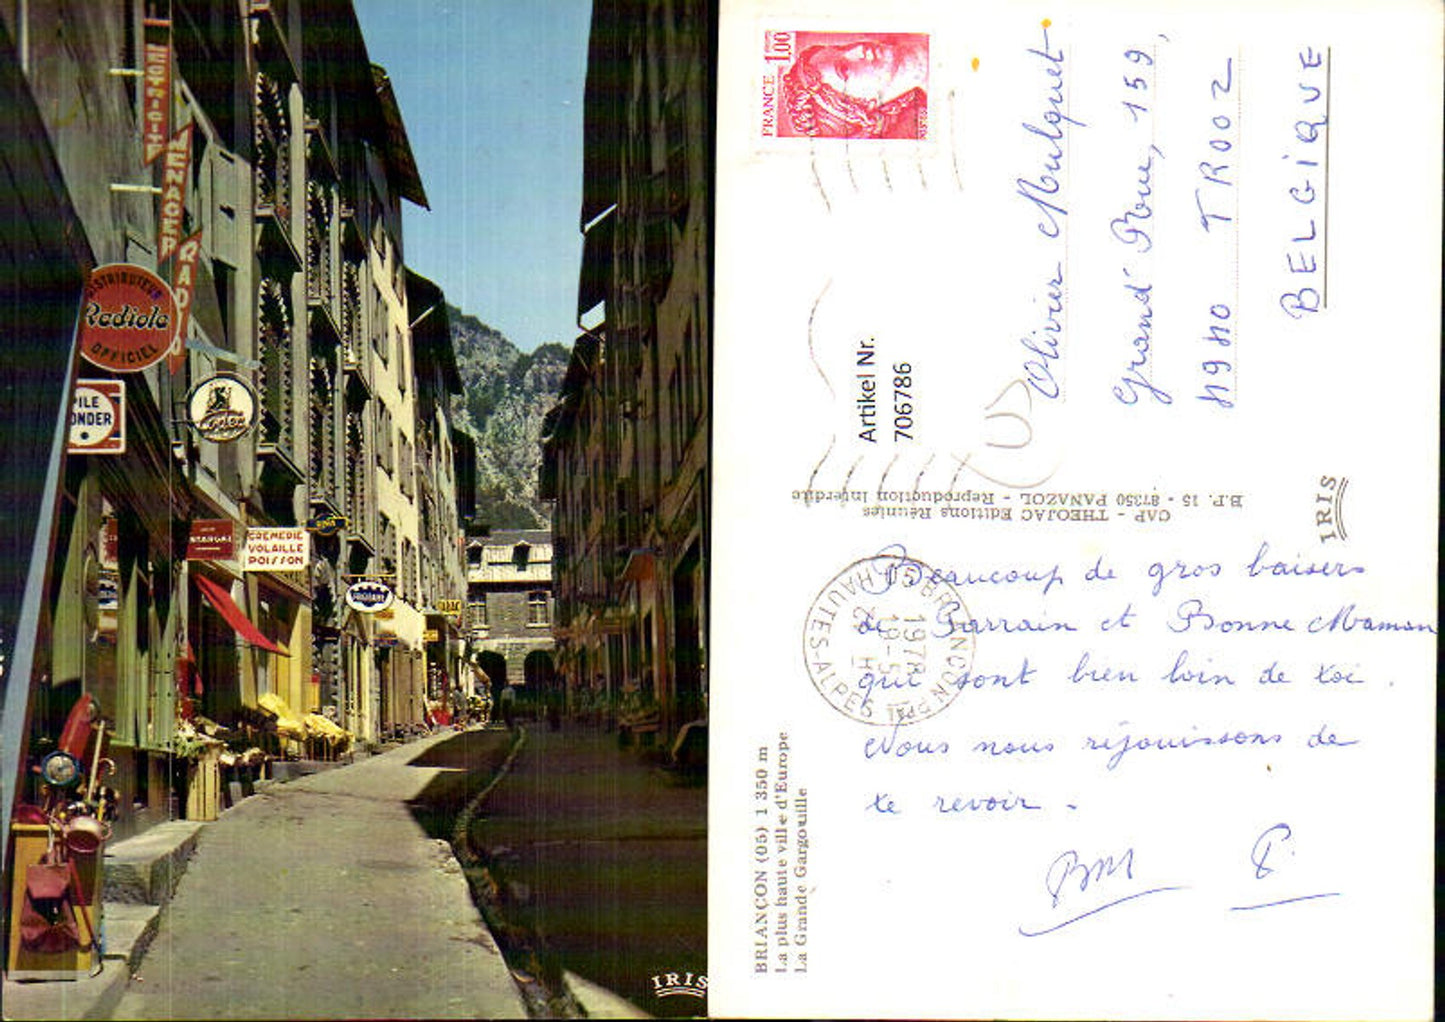 MENAGER
RADIO
DISTRIBUTEUR
Radiola
OFFICIEL
PILE
WONDER
CREMERIE
VOLAILLE
POISSON
FRIGIDAIRE
TABAC
IRIS
FRANCE 1,00
Olivier Mulquet
Grand'Rue, 159,
4940 TROOZ
BELGIQUE
Artikel Nr.
706786
CAP - THEOJAC Editions Réunies
B.P. 15 - 87350 PANAZOL - Reproduction interdite
IRIS
05 BRIANÇON PPAL
HAUTES-ALPES
19-5
1978
Beaucoup de gros baisers
de Parrain et Bonne Maman
qui sont bien loin de toi.
Nous nous réjouissons de
te revoir.
BM P.
BRIANÇON (05) 1 350 m
La plus haute ville d'Europe
La Grande Gargouille